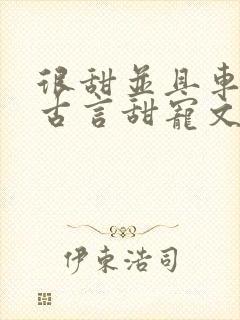 很甜並具車
古言甜寵文
伊東浩司